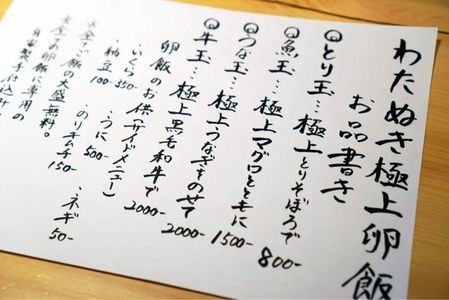 わたぬき極上卵飯
お品書き
とり玉…極上とりそぼろで 800-
魚玉…極上マグロとともに 1500-
うな玉…極上うなぎをのせて 2000-
牛玉…極上黒毛和牛で 2000-
卵飯のお供(サイドメニュー)
いくら 350- うに 500- ネギ 50-
納豆 100- のりキムチ 150-
ご飯の大盛無料。
卵飯に専用の